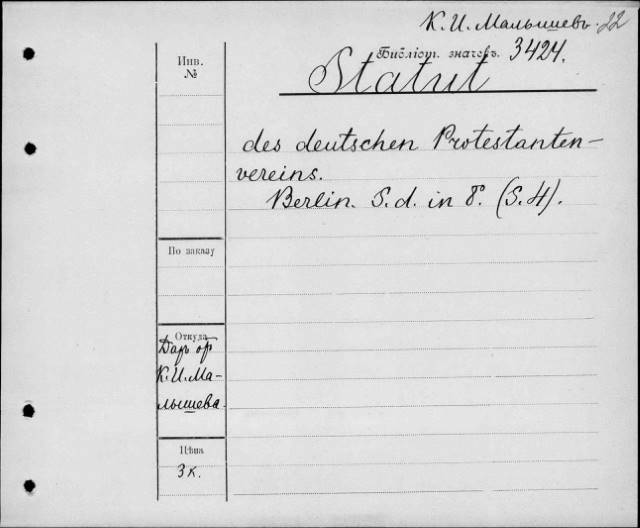 К. И. Малышевъ. 22
Библіот. значекъ. 3424.
Statut
des deutschen Protestanten-
vereins.
Berlin. S. d. in 8. (S. 4).
Инв.
№
По заказу
Откуда
Даръ
К. И. Ма-
лышева
Цѣна
3 к.